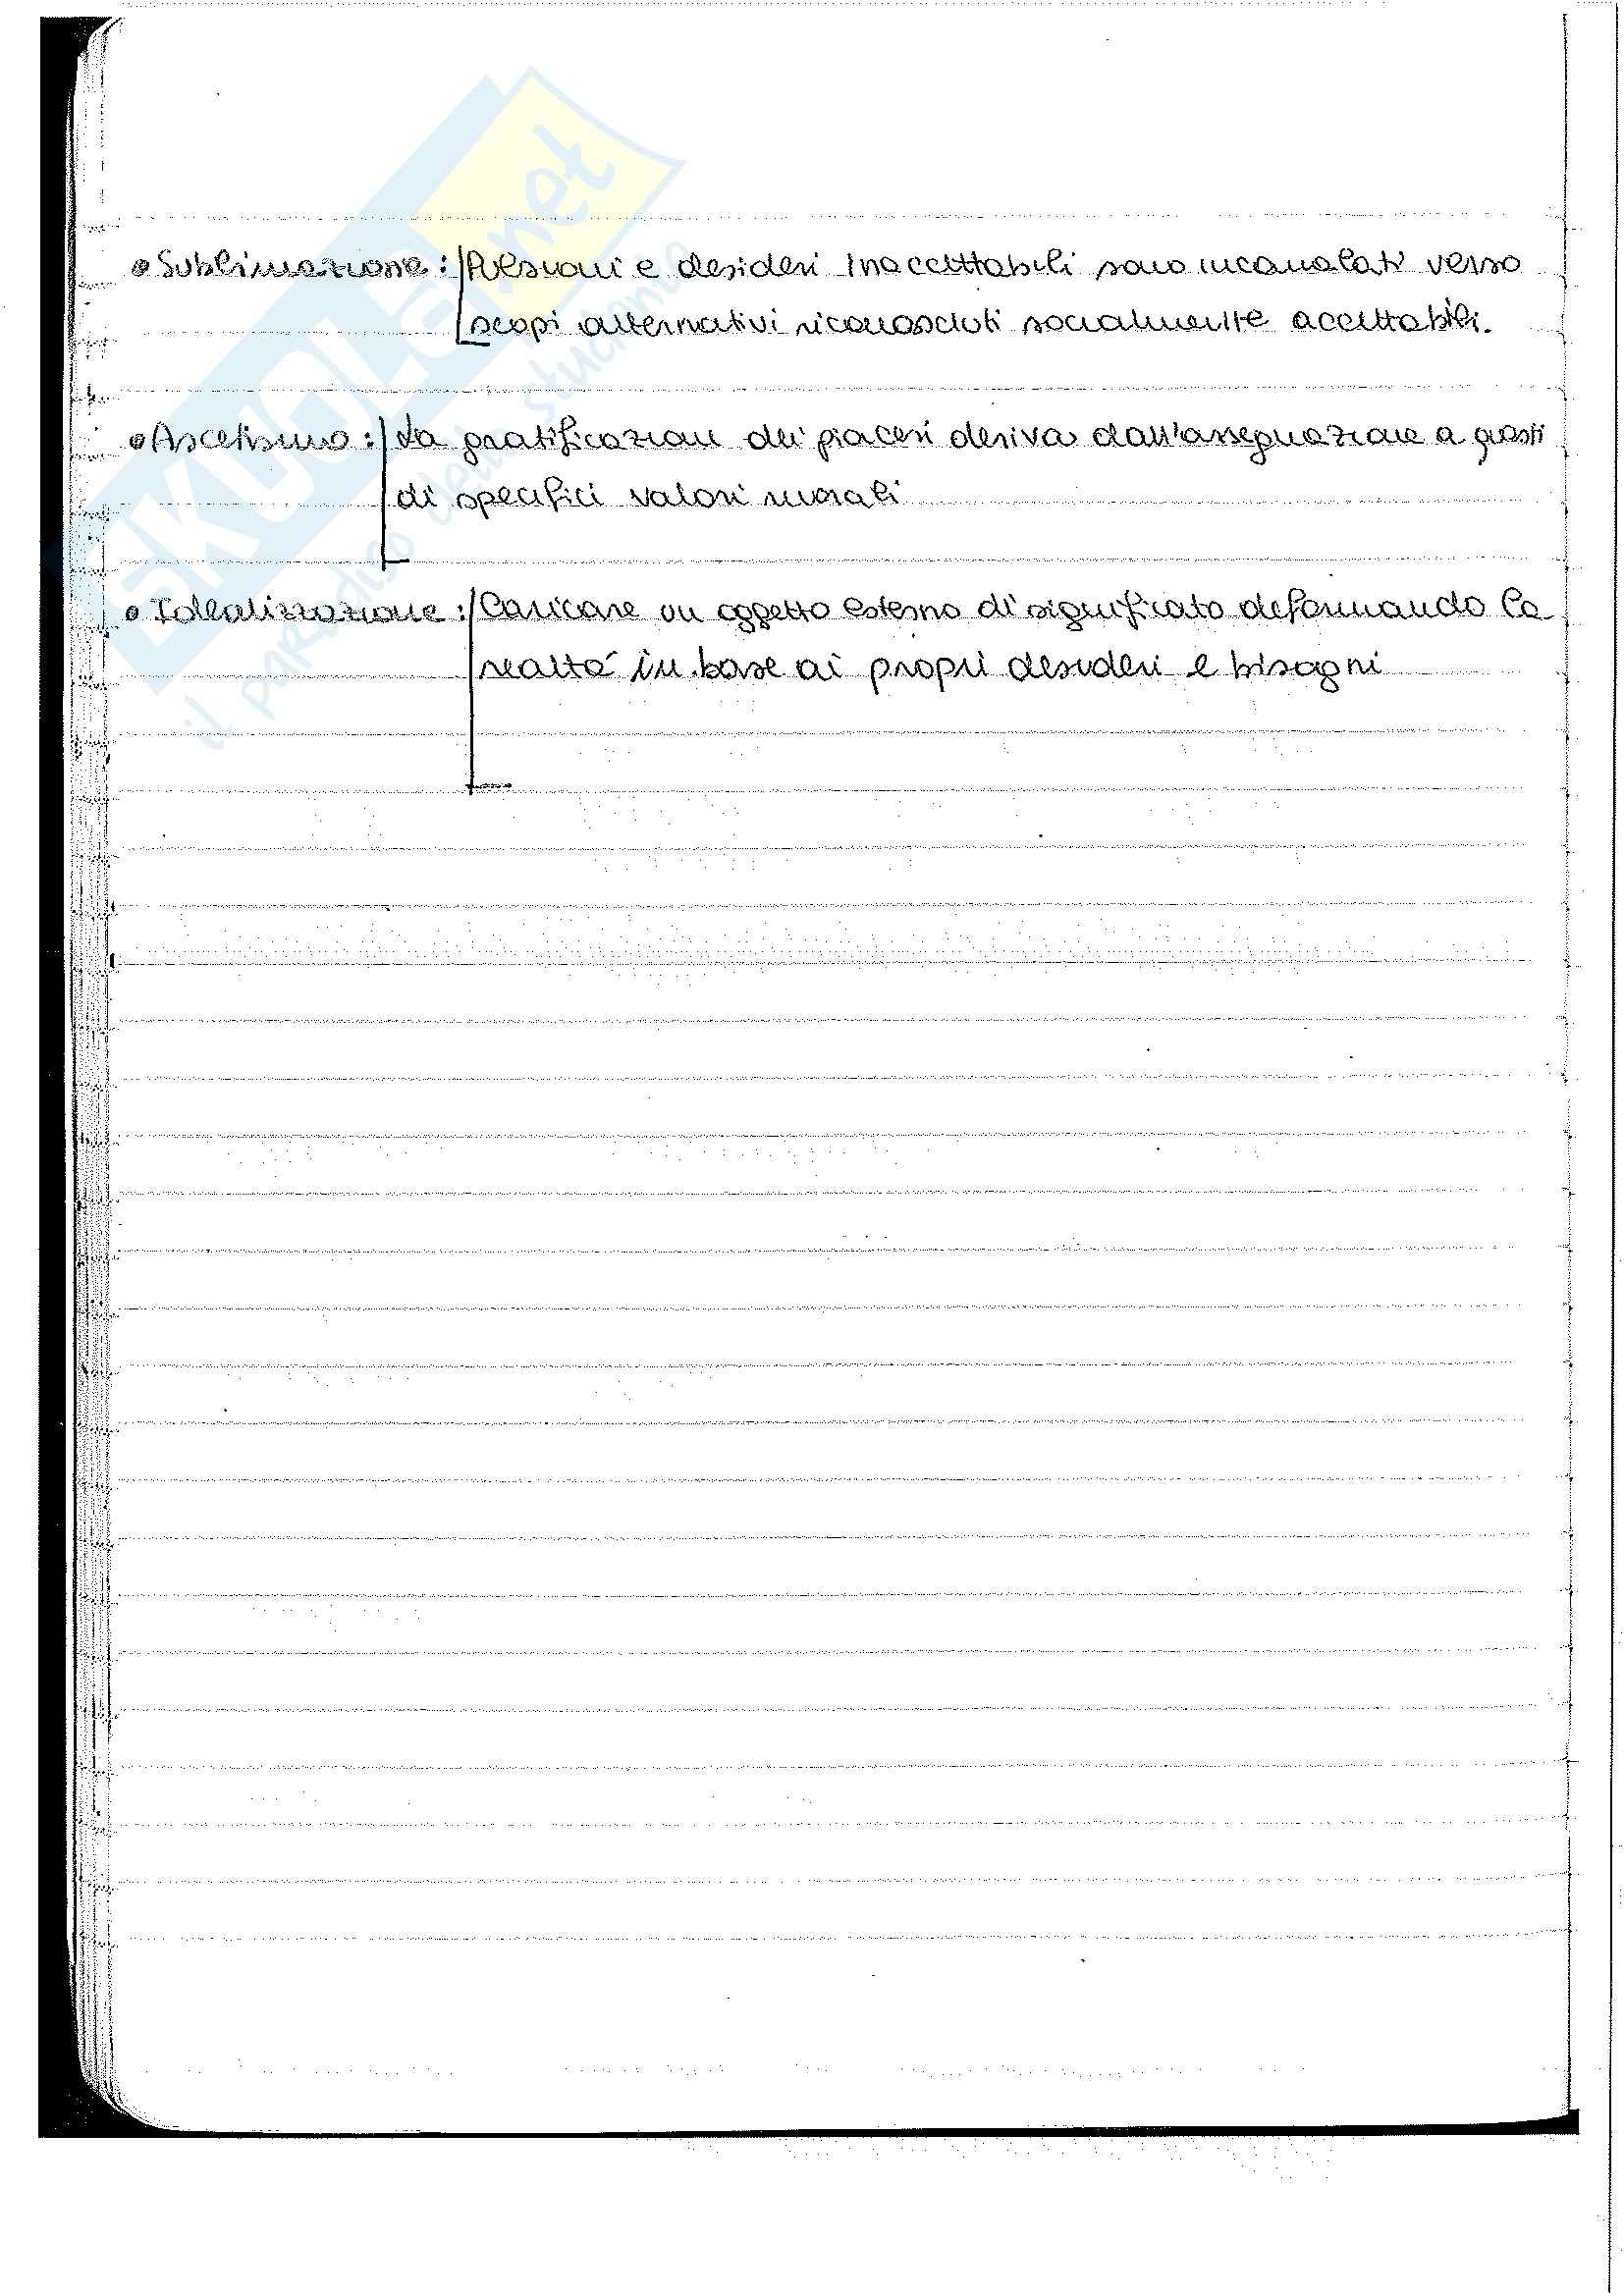 • Sublimazione: Pulsioni e desideri inaccettabili sono incanalati verso
scopi alternativi riconosciuti socialmente accettabili.
• Ascetismo: La gratificazione dei piaceri deriva dall'assegnazione a questi
di specifici valori morali
• Idealizzazione: Caricare un oggetto esterno di significato deformando la
realtà in base ai propri desideri e bisogni
SKUOLA.net
il paradiso dello studente